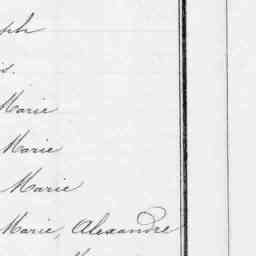 ph
s.
Marie
Marie
Marie
Marie, Alexandre